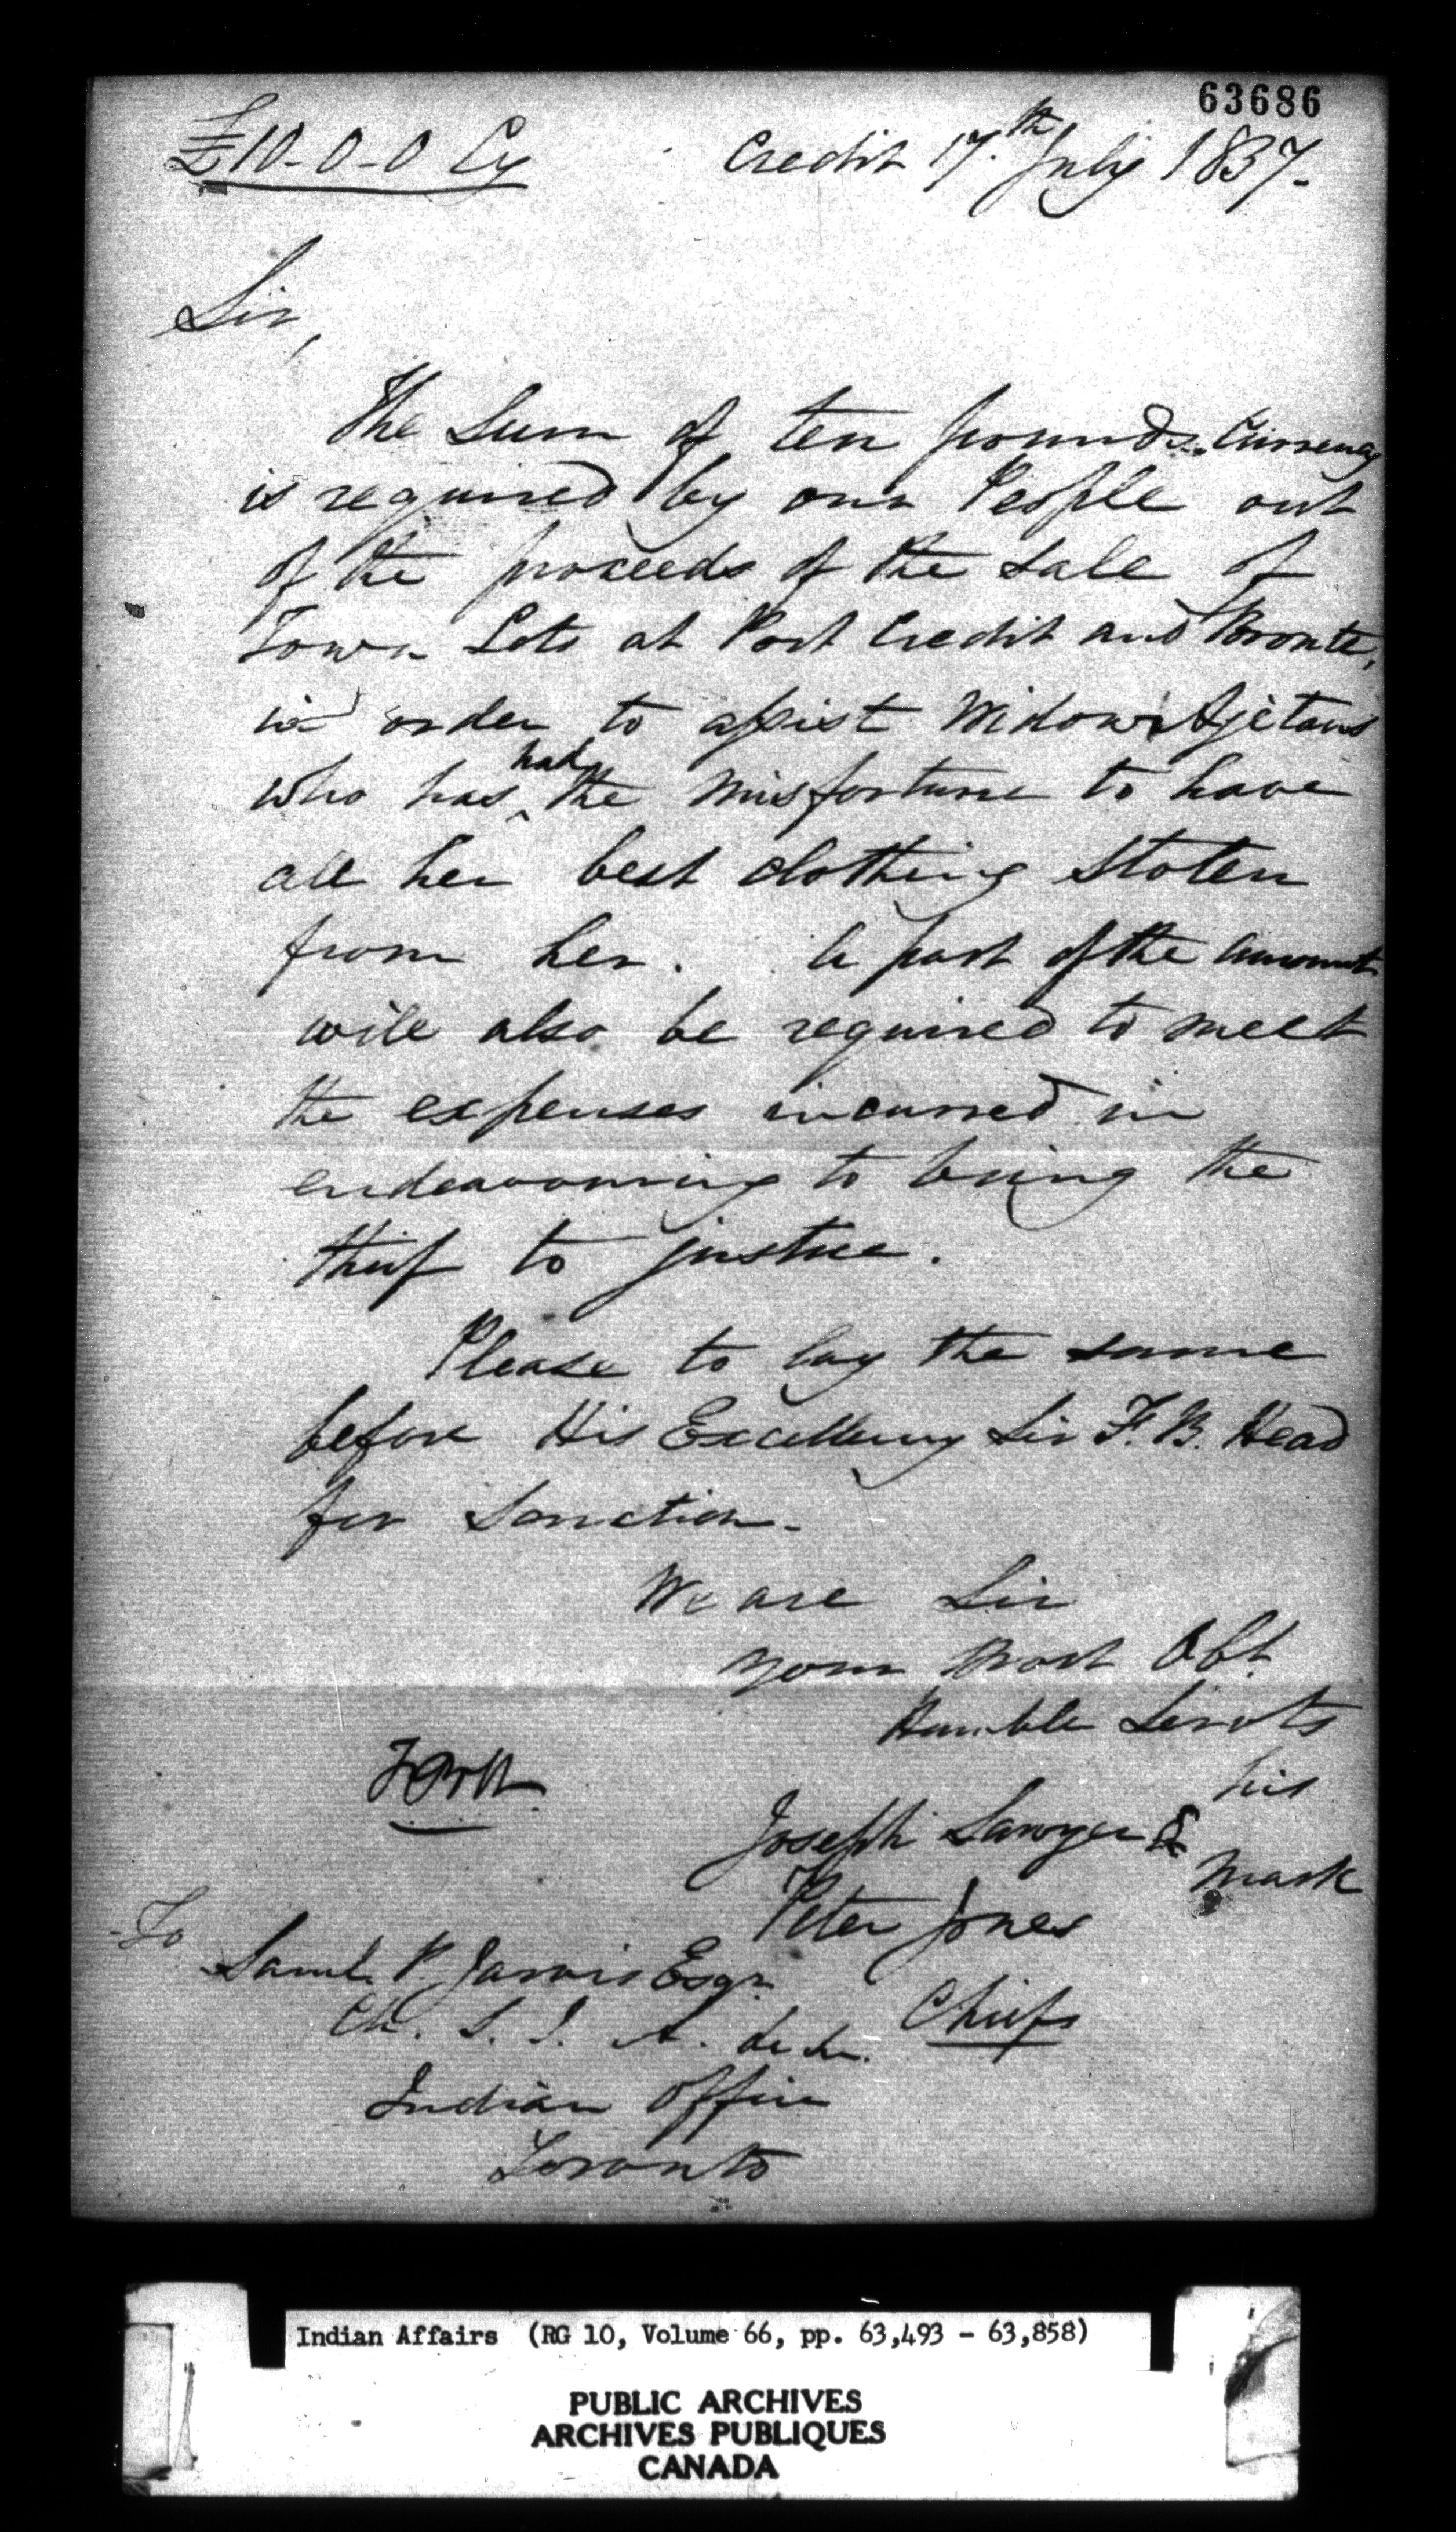 63686
£10-0-0 Cy
Credit 17.th July 1837-
Sir,
The Sum of ten pounds Currency
is required by our People out
of the proceeds of the sale of
Town Lots at Port Credit and Bronte,
in order to assist Widow Ajetans
who has had the misfortune to have
all her best clothing stolen
from her. A part of the amount
will also be required to meet
the expenses incurred in
endeavouring to bring the
thief to justice.
Please to lay the same
before His Excellency Sir F. B. Head
for Sanction-
We are Sir
your most Obt
Humble Servts
his
Joseph Sawyer
mark
Peter Jones
Chiefs
FBH
To
Saml. P. Jarvis Esqr.
Ch. S. I. A. &c &c.
Indian Office
Toronto
Indian Affairs (RG 10, Volume 66, pp. 63,493 - 63,858)
PUBLIC ARCHIVES
ARCHIVES PUBLIQUES
CANADA